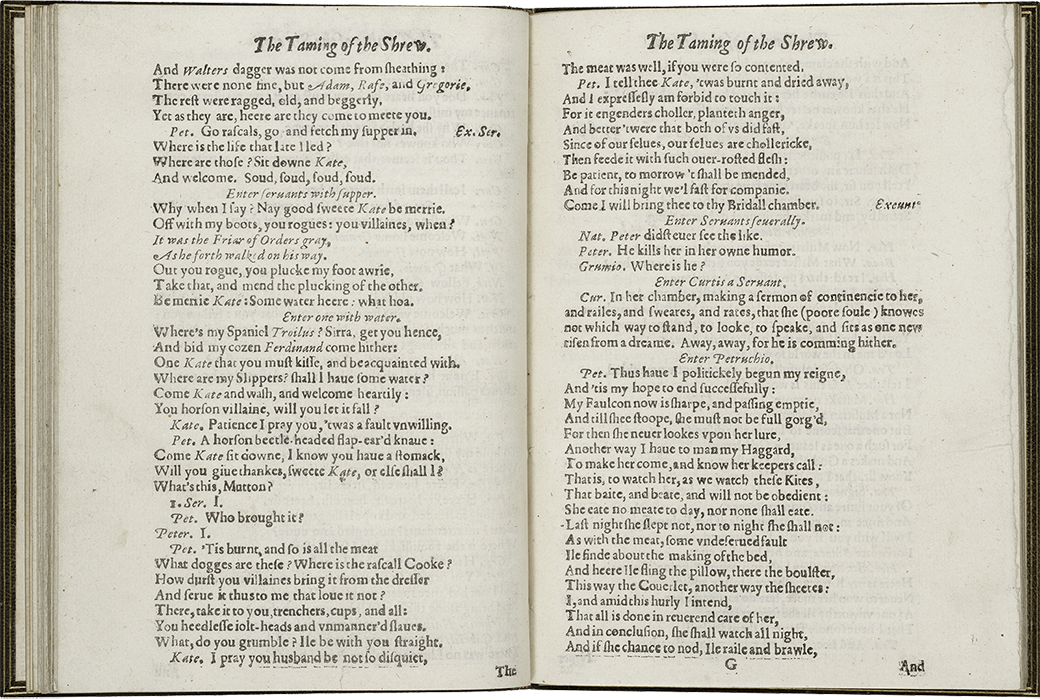 The Taming of the Shrew.
And Walters dagger was not come from sheathing :
There were none fine, but Adam, Rafe, and Gregorie,
The rest were ragged, old, and beggerly,
Yet as they are, heere are they come to meete you.
Pet. Go rascals, go and fetch my supper in. Ex. Ser.
Where is the life that late I led ?
Where are those ? Sit downe Kate,
And welcome. Soud, soud, soud, soud.
Enter servants with supper.
Why when I say ? Nay good sweete Kate be merrie.
Off with my boots, you rogues: you villaines, when ?
It was the Friar of Orders gray,
As he forth walked on his way.
Out you rogue, you plucke my foot awrie,
Take that, and mend the plucking of the other.
Be merrie Kate : Some water heere : what hoa.
Enter one with water.
Where's my Spaniel Troilus ? Sirra, get you hence,
And bid my cozen Ferdinand come hither:
One Kate that you must kisse, and be acquainted with.
Where are my Slippers? shall I haue some water ?
Come Kate and wash, and welcome heartily :
You horson villaine, will you let it fall ?
Kate. Patience I pray you, 'twas a fault vnwilling.
Pet. A horson beetle-headed flap-ear'd knaue :
Come Kate sit downe, I know you haue a stomack,
Will you giue thankes, sweete Kate, or else shall I?
What's this, Mutton?
1. Ser. I.
Pet. Who brought it?
Peter. I.
Pet. 'Tis burnt, and so is all the meat
What dogges are these ? Where is the rascall Cooke ?
How durst you villaines bring it from the dresser
And serue it thus to me that loue it not ?
There, take it to you, trenchers, cups, and all:
You heedlesse iolt-heads and vnmanner'd slaues.
What, do you grumble ? Ile be with you straight.
Kate. I pray you husband be not so disquiet,
The
The Taming of the Shrew.
The meat was well, if you were so contented.
Pet. I tell thee Kate, 'twas burnt and dried away,
And I expressely am forbid to touch it :
For it engenders choller, planteth anger,
And better 'twere that both of vs did fast,
Since of our selues, our selues are chollericke,
Then feede it with such ouer-rosted flesh :
Be patient, to morrow 't shall be mended,
And for this night we'l fast for companie.
Come I will bring thee to thy Bridall chamber. Exeunt.
Enter Servants severally.
Nat. Peter didst euer see the like.
Peter. He kills her in her owne humor.
Grumio. Where is he ?
Enter Curtis a Servant.
Cur. In her chamber, making a sermon of continencie to her,
and railes, and sweares, and rates, that she (poore soule) knowes
not which way to stand, to looke, to speake, and sits as one new
risen from a dreame. Away, away, for he is comming hither.
Enter Petruchio.
Pet. Thus haue I politickely begun my reigne,
And 'tis my hope to end successefully :
My Faulcon now is sharpe, and passing emptie,
And till shee stoope, she must not be full gorg'd,
For then she neuer lookes vpon her lure,
Another way I haue to man my Haggard,
To make her come, and know her keepers call :
That is, to watch her, as we watch these Kites,
That baite, and beate, and will not be obedient :
She eate no meate to day, nor none shall eate.
Last night she slept not, nor to night she shall not :
As with the meat, some vndeserued fault
Ile finde about the making of the bed,
And heere Ile fling the pillow, there the boulster,
This way the Couerlet, another way the sheetes :
I, and amid this hurly I intend,
That all is done in reuerend care of her,
And in conclusion, she shall watch all night,
And if she chance to nod, Ile raile and brawle,
G And